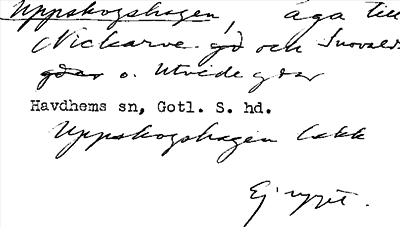 Uppskogshagen, äga till
Nickarve gd och Snovalds
gdar o. Utvide gdar
Havdhems sn, Gotl. S. hd.
Uppskogshagen lakk
Ej uppt.